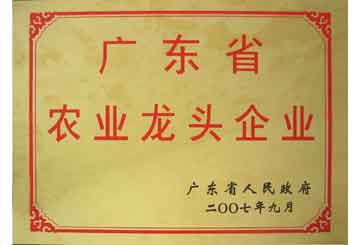 广东省
农业龙头企业
广东省人民政府
二〇〇七年九月